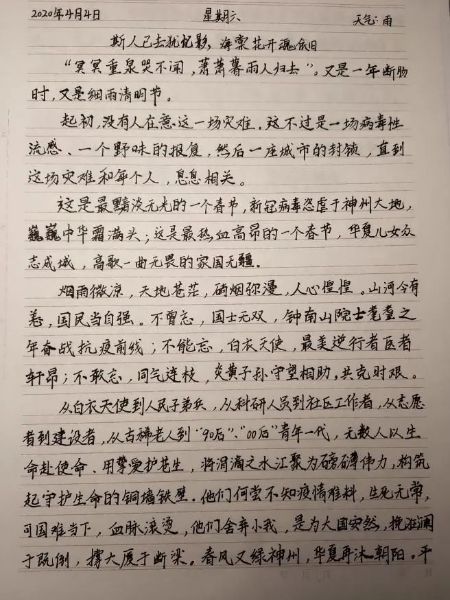 2020年4月4日 星期六 天气：雨
斯人已去犹忆影，海棠花开魂依旧
“冥冥重泉哭不闻，萧萧暮雨人归去”。又是一年断肠
时，又是细雨清明节。
起初，没有人在意这一场灾难，这不过是一场病毒性
流感、一个野味的报复，然后一座城市的封锁，直到
这场灾难和每个人，息息相关。
这是最黯淡无光的一个春节，新冠病毒恣虐于神州大地，
巍巍中华霜满头；这是最热血高昂的一个春节，华夏儿女众
志成城，高歌一曲无畏的家国无疆。
烟雨微凉，天地苍茫，硝烟弥漫，人心惶惶。山河今有
恙，国民当自强。不曾忘，国士无双，钟南山院士耄耋之
年奋战抗疫前线；不能忘，白衣天使，最美逆行者医者
轩昂；不敢忘，同气连枝，炎黄子孙守望相助，共克时艰。
从白衣天使到人民子弟兵，从科研人员到社区工作者，从志愿
者到建设者，从古稀老人到“90后”、“00后”青年一代，无数人以生
命赴使命、用挚爱护苍生，将涓滴之水汇聚为磅礴伟力，构筑
起守护生命的铜墙铁壁。他们何尝不知疫情难料，生死无常，
可国难当下，血脉滚烫，他们舍弃小我，是为大国安然，挽狂澜
于既倒，撑大厦于断梁。春风又绿神州，华夏再沐朝阳。平